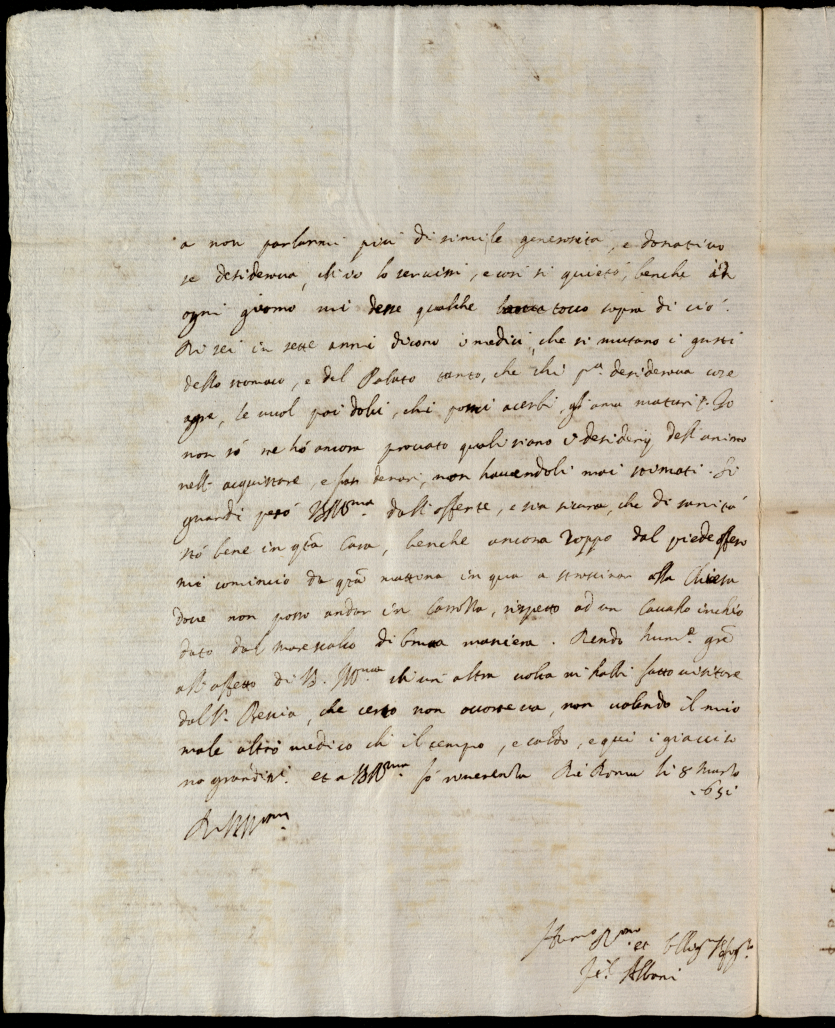 a non parlarmi più di simile generosità, e donativo
se desiderava, ch'io lo servissi, e così si quietò, benche in
ogni giorno mi desse qualche tocco sopra di ciò.
Di sei in sette anni dicono i medici, che si mutano i gusti
dello stomaco, e del Palato tanto, che chi pa desiderava cose
agre, le vuol poi dolci, chi pomi acerbi, gl'ama maturi. Io
non sò ne hò ancora provato quali siano i desiderij dell'animo
nell'acquistare, e far denari, non havendoli mai stimati. Si
guardi però VS Illma dall'offerte, e sia sicura, che di sanità
stò bene in qta Casa, benche ancora zoppo dal piede offeso
mi comincio da qta mattina in qua a strascinar alla Chiesa
dove non posso andar in Carrozza, rispetto ad un Cavallo inchio
dato dal marescalco di bruta maniera. Rendo hume grē
all'affetto di V.S. Illma ch'un altra volta mi habbi fatto visitare
dal Sr. Brescia, che certo non occorreva, non volendo il mio
male altro medico ch'il tempo, e caldo, e qui i giacci so
no grandiss.i et a VS Illma fò reverenza Di Roma li 8 Marzo
1651
Di VS Illma
Albani